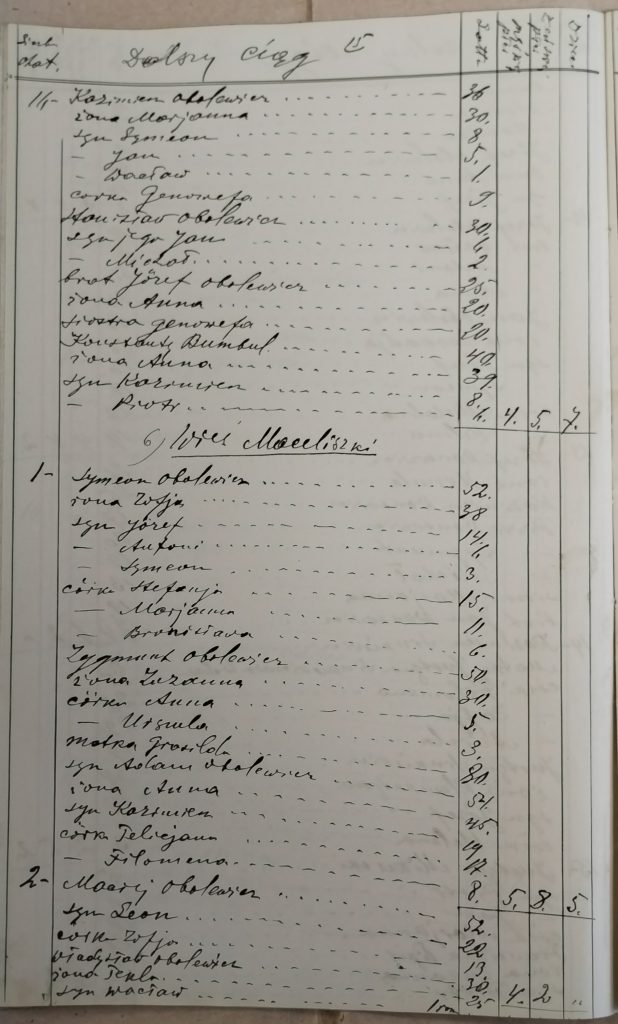 Dalszy ciąg
11,- Kazimierz Obolewicz 36
żona Marjanna 30.
syn Symeon 8
- Jan 5.
- Wacław 1.
córka Genowefa 9.
Stanisław Obolewicz 30.
syn jego Jan
- Michał 2.
brat Józef Obolewicz 25.
żona Anna 20.
siostra Genowefa 20.
Konstanty Bumbul 40.
żona Anna 39.
syn Kazimierz 8.
- Piotr 4. 5. 7.
6) Wieś Maceliszki
1- Symeon Obolewicz 52.
żona Zofja 38
syn Józef 14.
- Antoni
- Symeon 3.
córka Stefanja 15.
- Marjanna 11.
- Bronisława 6.
Zygmunt Obolewicz 50.
żona Zuzanna 30.
córka Anna 5.
- Urszula 3.
matka Grasilda 80.
syn Adam Obolewicz 54.
żona Anna 45.
syn Kazimierz 19
córka Felicjana 17.
- Filomena 8. 5. 8. 5.
2- Maciej Obolewicz 52.
syn Leon 22
córka Zofja 13.
Władysław Obolewicz 30.
żona Tekla 25
syn Wacław 4. 2 "